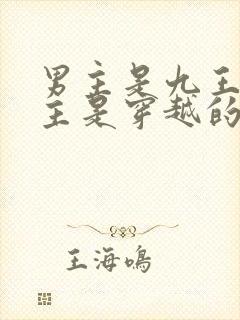 男主是九王
主是穿越的
王海鸣